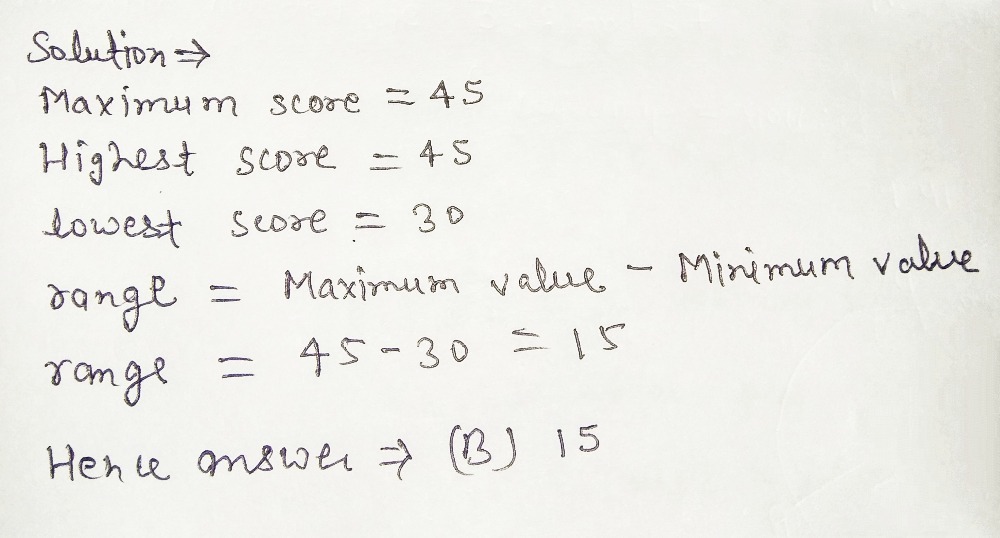 Solution ⇒
Maximum score = 45
Highest score = 45
lowest score = 30
range = Maximum value - Minimum value
range = 45 - 30 = 15
Hence answer ⇒ (B) 15